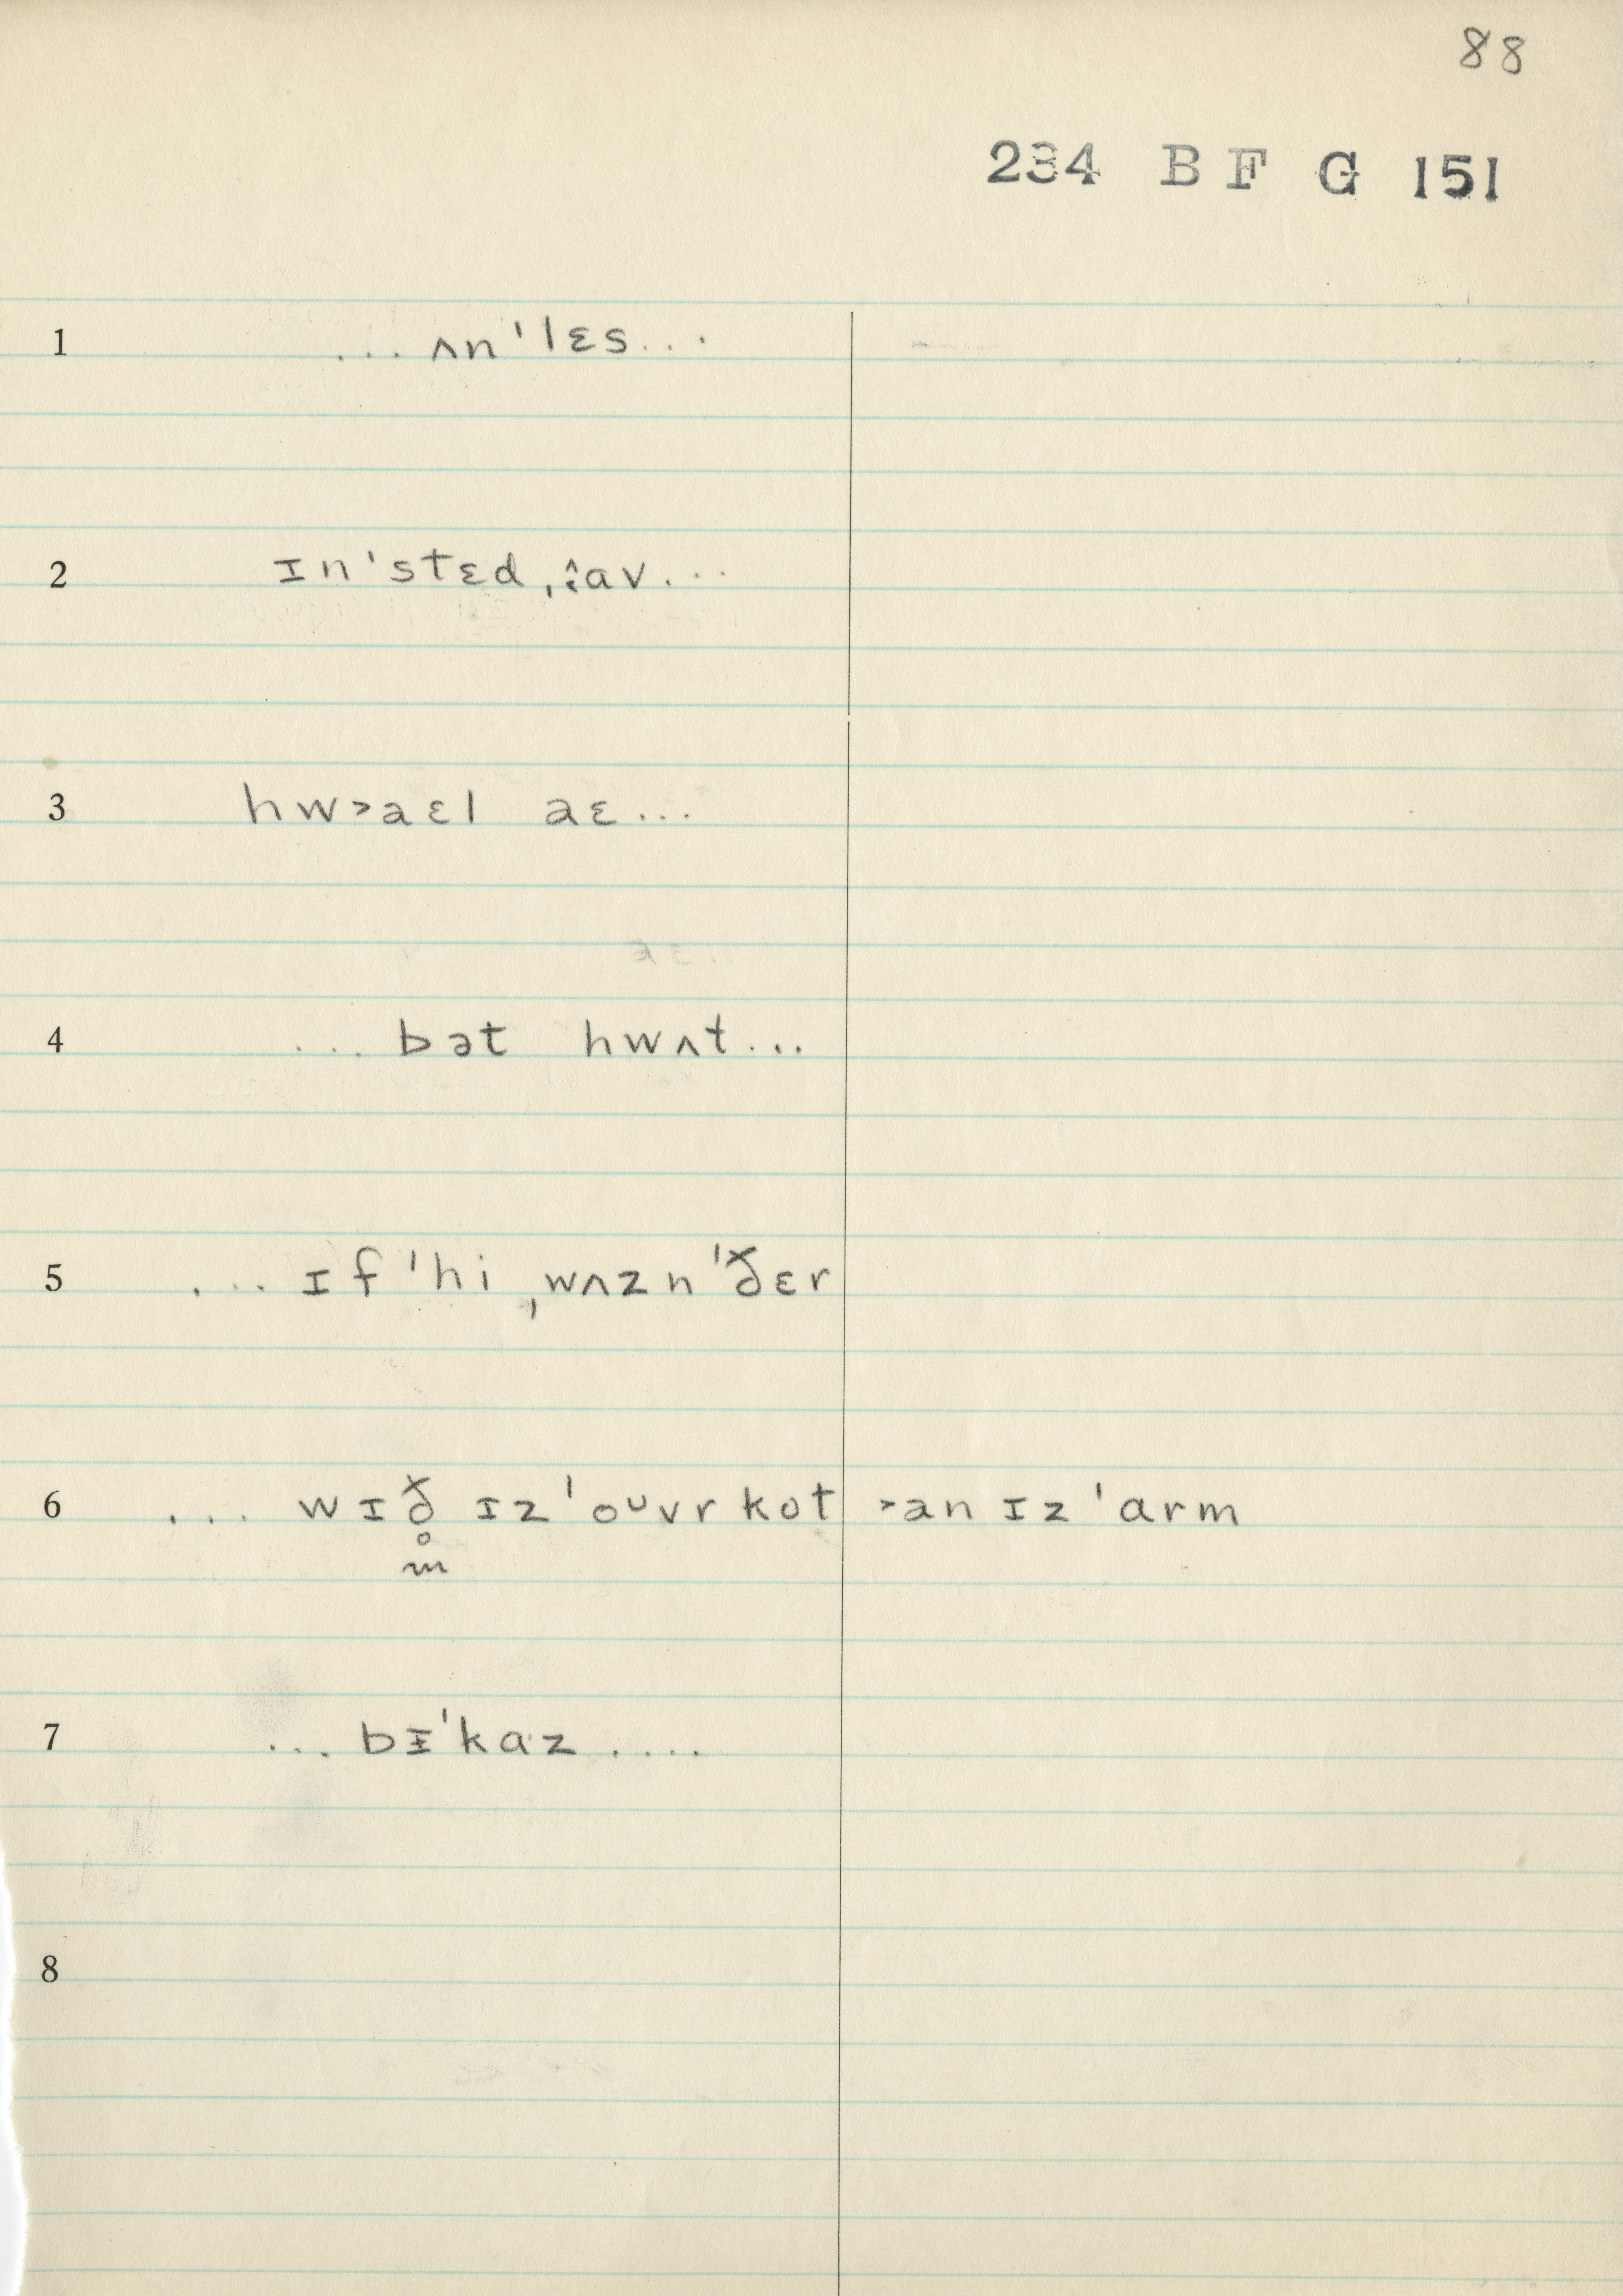 88
234 B F G 151
1 ... ʌn'lɛs...
2 ɪn'stɛd ˌɑv...
3 hw˃aɛl aɛ...
4 ... bət hwʌt...
5 ... ɪf 'hi ˌwʌzn 'ðɛr
6 ... wɪð̥ ɪz 'oᴜvr kot ˃an ɪz 'ɑrm
m
7 ... bɪ̵'kɑz ....
8